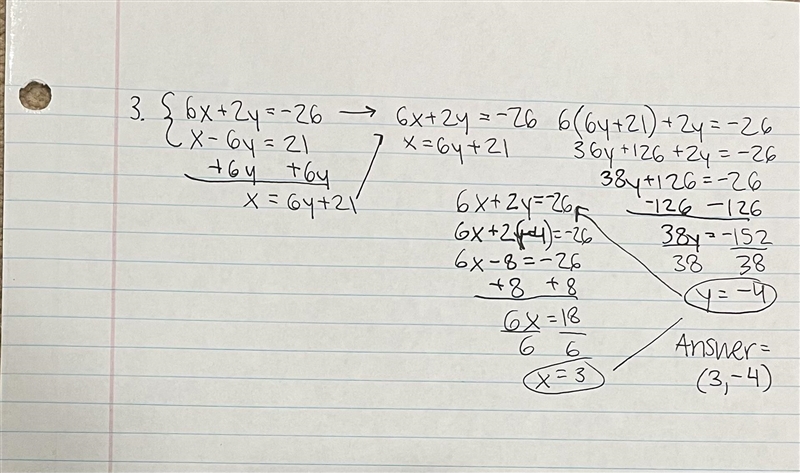 3. { 6x+2y=-26 → 6x+2y=-26
x-6y=21 x=6y+21
+6y +6y
x=6y+21
6(6y+21)+2y=-26
36y+126+2y=-26
38y+126=-26
-126 -126
38y=-152
38 38
y=-4
6x+2y=-26
6x+2(-4)=-26
6x-8=-26
+8 +8
6x=18
6 6
x=3
Answer=
(3,-4)